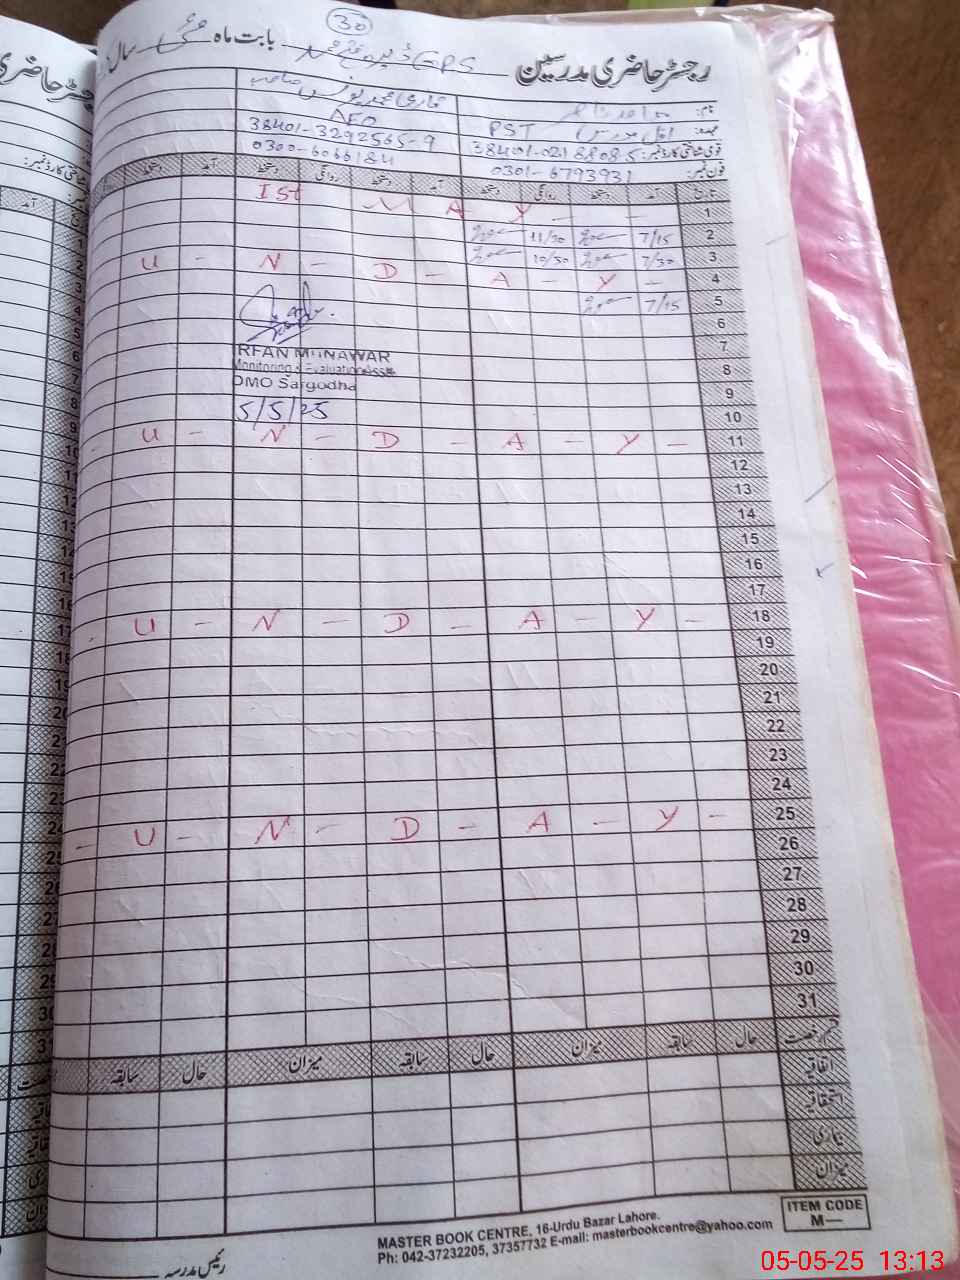 30
رجسٹر حاضری مدرسین GPS بابت ماہ مئی سال
نام:
قاری محمد یونس صاحب
عہدہ: PST
AEO
قومی شناختی کارڈ نمبر: 38401-0218808-5
38401-3292565-9
فون نمبر: 0301-6793931
0300-6066184
تاریخ آمد دستخط روانگی دستخط آمد دستخط روانگی دستخط آمد دستخط
1 Ist M A Y - -
2 7/15 11/30
3 7/30 10/30
4 U - N - D - A - Y -
5 7/15
6
7
IRFAN MUNAWAR
8
Monitoring & Evaluation Assis
DMO Sargodha
9
5/5/25
10
11 U - N - D - A - Y -
12
13
14
15
16
17
18 - U - N - D - A - Y -
19
20
21
22
23
24
25 - U - N - D - A - Y -
26
27
28
29
30
31
قسم رخصت حال سابقہ میزان حال سابقہ میزان حال سابقہ
اتفاقیہ
استحقاقیہ
بیماری
میزان
ITEM CODE
M—
MASTER BOOK CENTRE, 16-Urdu Bazar Lahore.
Ph: 042-37232205, 37357732 E-mail: masterbookcentre@yahoo.com
رئیس مدرسہ
05-05-25 13:13